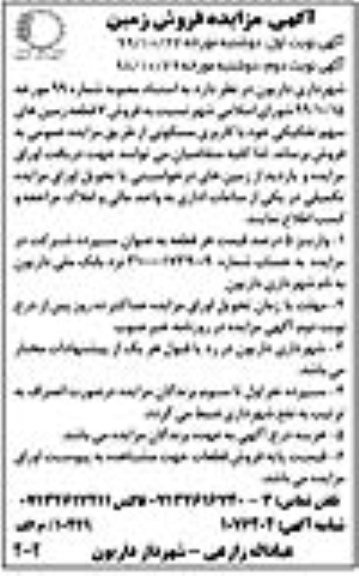 آگهی مزایده فروش زمین
آگهی نوبت اول: دوشنبه مورخه ۹۹/۱۰/۲۲
آگهی نوبت دوم: دوشنبه مورخه
شهرداری داریون در نظر دارد به استناد مصوبه شماره ۹۹ مورخه
۹۹/۱۰/۱۵ شورای اسلامی شهر نسبت به فروش ۷ قطعه زمین های
سهم تفکیکی خود با کاربری مسکونی از طریق مزایده عمومی به
فروش برساند. لذا کلیه متقاضیان می توانند جهت دریافت اوراق
مزایده و بازدید از زمین های درخواستی با تحویل اوراق مزایده
تکمیلی در یکی از ساعات اداری به واحد مالی و املاک مراجعه و
کسب اطلاع نمایند.
۱- واریز ۵ درصد قیمت هر قطعه به عنوان سپرده شرکت در
مزایده به حساب شماره نزد بانک ملی داریون
به نام شهرداری داریون
۲- مهلت یا زمان تحویل اوراق مزایده حداکثر ده روز پس از درج
نوبت دوم آگهی مزایده در روزنامه
۳- شهرداری داریون در رد یا قبول هر یک از پیشنهادات مختار
می باشد.
۴- سپرده نفر اول تا سوم برندگان مزایده در صورت انصراف به
ترتیب به نفع شهرداری ضبط می گردد.
۵- هزینه درج آگهی به عهده برندگان مزایده می باشد.
۶- قیمت پایه فروش قطعات جهت مشاهده به پیوست اوراق
مزایده می باشد.
تلفن تماس: ۳-۰۷۱۳۲۶۱۶۲۴۰ فاکس ۰۷۱۳۲۶۲۲۴۱۱
شناسه آگهی: ۱۰۷۶۴۰۴ /م الف
عبادالله زارعی - شهردار داریون